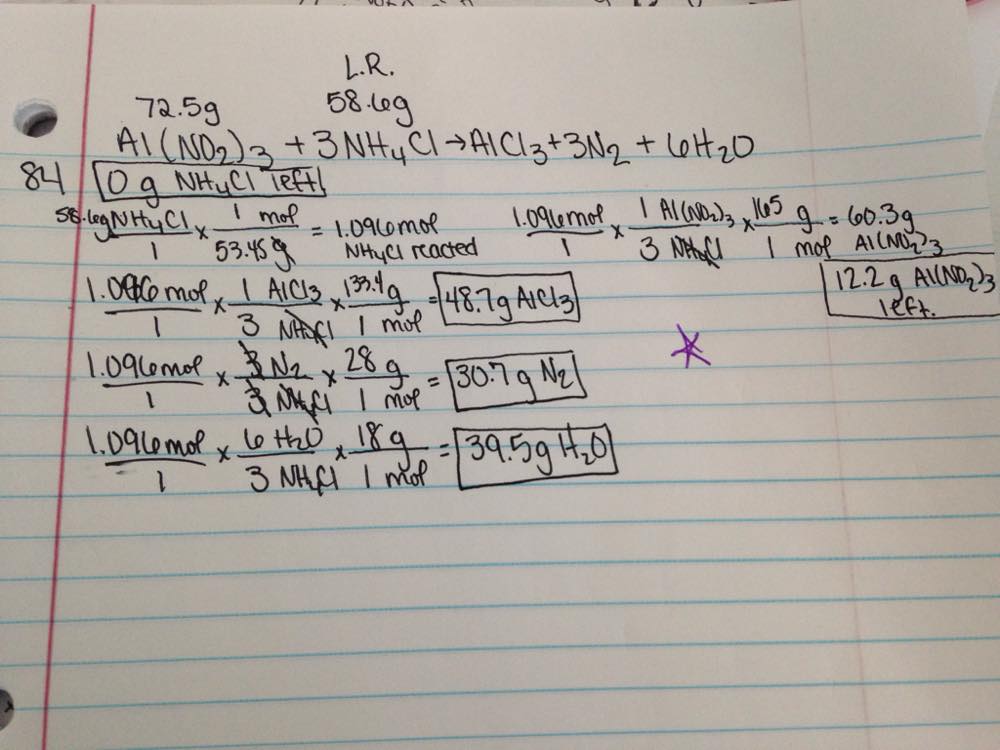 L.R.
72.5g 58.6g
Al(NO2)3 + 3NH4Cl → AlCl3 + 3N2 + 6H2O
84 0 g NH4Cl left
58.6g NH4Cl/1 × 1 mol/53.45 g = 1.096mol NH4Cl reacted
1.096mol/1 × 1 Al(NO2)3/3 NH4Cl × 165 g/1 mol = 60.3g Al(NO2)3
12.2 g Al(NO2)3 left.
1.096 mol/1 × 1 AlCl3/3 NH4Cl × 133.4 g/1 mol = 48.7g AlCl3
1.096mol/1 × 3 N2/3 NH4Cl × 28 g/1 mol = 30.7 g N2
1.096mol/1 × 6 H2O/3 NH4Cl × 18 g/1 mol = 39.5g H2O